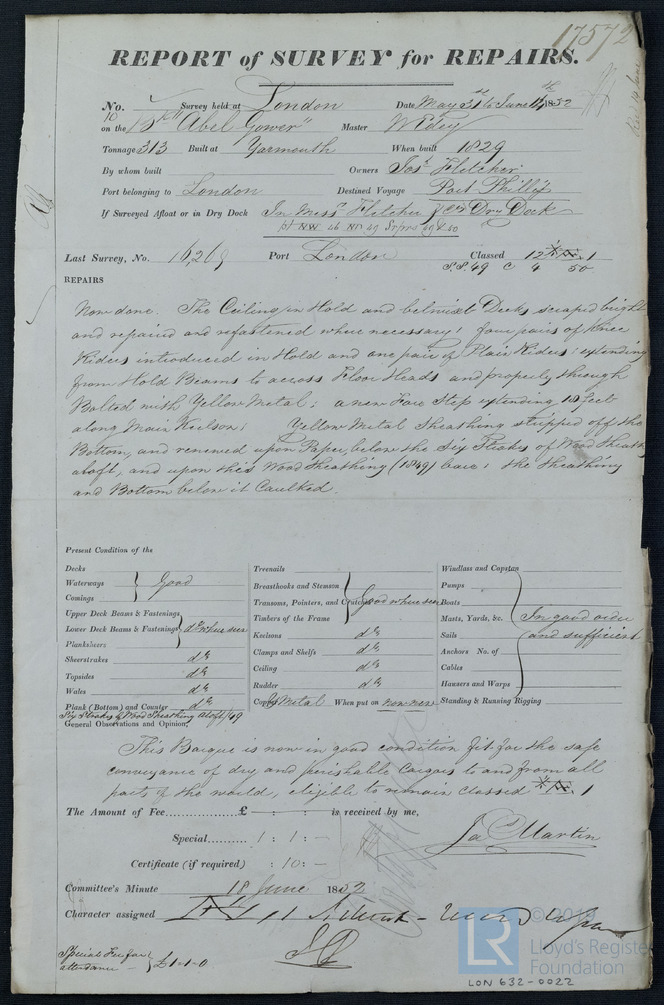 17572
REPORT of SURVEY for REPAIRS.
No. Survey held at London Date May 31st to June 14th 1852
on the Bk "Abel Gower" Master W Edey
Tonnage 313 Built at Yarmouth When built 1829
By whom built Owners Jos. Fletcher
Port belonging to London Destined Voyage Port Phillip
If Surveyed Afloat or in Dry Dock In Messrs Fletcher & Co's Dry Dock
Last Survey, No. 16,269 Port London Classed 12 1
S.S. 49 C 4 50
REPAIRS
Now done. The Ceiling in Hold and betwixt Decks scraped bright
and repaired and refastened where necessary; four pairs of Knee
Riders introduced in Hold and one pair of Plain Riders; extending
from Hold Beams to across Floor Heads and properly through
Bolted with Yellow Metal; a new Fore Step extending 15 feet
along Main Keelson; Yellow Metal Sheathing stripped off the
Bottom, and renewed upon Paper, below the Six Strakes of Wood Sheath
aloft, and upon this Wood Sheathing (1849) bare; the sheathing
and Bottom below it Caulked.
Present Condition of the
Decks
Waterways Good
Comings
Upper Deck Beams & Fastenings
Lower Deck Beams & Fastenings do where seen
Planksheers
Sheerstrakes do
Topsides do
Wales do
Plank (Bottom) and Counter do
Six Strakes of Wood Sheathing aloft /49
Treenails
Breasthooks and Stemson
Transoms, Pointers, and Crutches Good where seen
Timbers of the Frame
Keelsons do
Clamps and Shelfs do
Ceiling do
Rudder do
Copper Y Metal When put on now new
Windlass and Capstan
Pumps
Boats
Masts, Yards, &c. In good order
Sails and sufficient
Anchors No. of
Cables
Hawsers and Warps
Standing & Running Rigging
General Observations and Opinion,
This Barque is now in good condition fit for the safe
conveyance of dry and perishable Cargoes to and from all
parts of the world, eligible to remain classed 1
The Amount of Fee £ : : is received by me,
Special 1 : 1 : —
Jas Martin
Certificate (if required) : 10 : —
Committee's Minute 18 June 1852
Character assigned
Special Fee for
attendance — £1-1-0
© 2019
LR
Lloyd's Register
Foundation
LON 632-0022